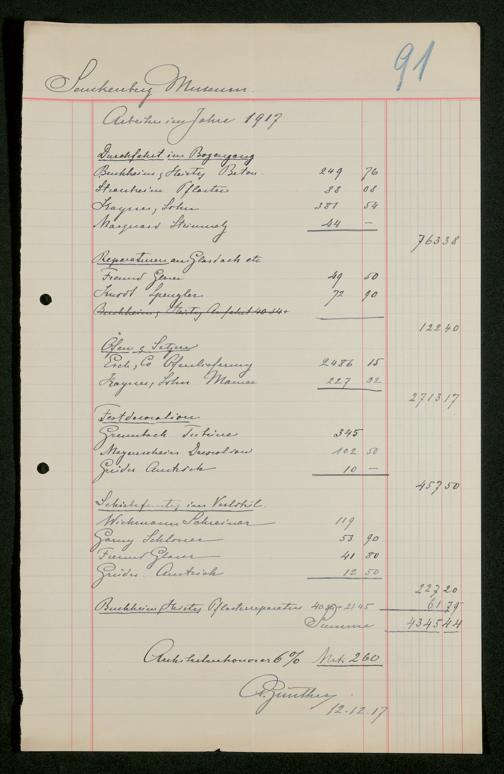 91
Senckenberg Museum.
Arbeiten im Jahre 1917
Durchfahrt im Bogengang
Buchheim & Heister Beton 249 76
Strauheim Pflaster 38 08
Kayser, Sohn 381 54
Marquard Steinmetz 44 —
763 38
Reparaturen am Glasdach etc
Freund Glaser 49 50
Knodt Spengler 72 90
Buchheim & Heister Anfahrt 40 34
122 40
Öfen & Setzen
Esch, Co Ofenlieferung 2486 15
Kayser, Sohn Maurer 227 02
2713 17
Festdecoration
Tribüne 345
Decoration 102 50
Anstrich 10 —
457 50
im Vestibül.
Wichmann Schreiner 119
Schlosser 53 90
Freund Glaser 41 80
Anstrich 12 50
227 20
Buchheim & Heister Pflasterreparatur 40.34 + 21 45 61 79
Summe 4345 44
Architectenhonorar 6% Mk. 260
Günther
12.12.17